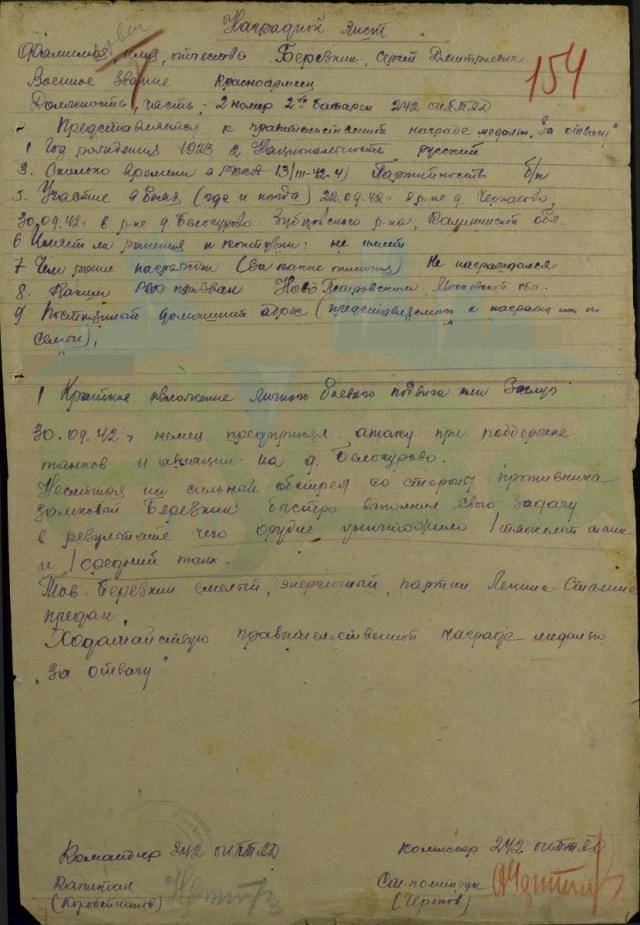 Наградной лист
154
Фамилия, имя, отчество Березкин, Сергей Дмитриевич
Военное звание Красноармеец
Должность, часть: 2 номер 2ой батареи 242 оиптад
Представляется к правительственной награде медаль „За отвагу"
1 Год рождения 1923 2, Национальность русский
3. Сколько времени в РККА 13/III-42 4) Партийность б/п
5. Участие в боях (где и когда) 22.09.42г в р-не д. Чернасово,
30.09.42г в р-не д. Белогурово Зубцовского р-на, Калининской обл.
6 Имеет ли ранения и контузии: не имеет
7 Чем ранее награжден (за какие отличия) Не награждался
8. Каким РВК призван Ново Петровским Московской обл.
9 Постоянный домашний адрес (представляемого к награде или его
семьи),
1 Краткое изложение личного боевого подвига или заслуг
30.09.42г немец предпринял атаку при поддержке
танков и авиации на д. Белогурово.
Несмотря на сильный обстрел со стороны противника
замковой Березкин быстро выполнял свою задачу
в результате чего орудие уничтожило 1 тяжелый танк
и 1 средний танк.
Тов. Березкин смелый, энергичный, партии Ленина-Сталина
предан.
Ходатайствую правительственной награде медалью
„За отвагу"
Командир 242 оиптад
Капитан
(Коровятников)
Комиссар 242 оиптад
Ст. политрук
(Чертов)